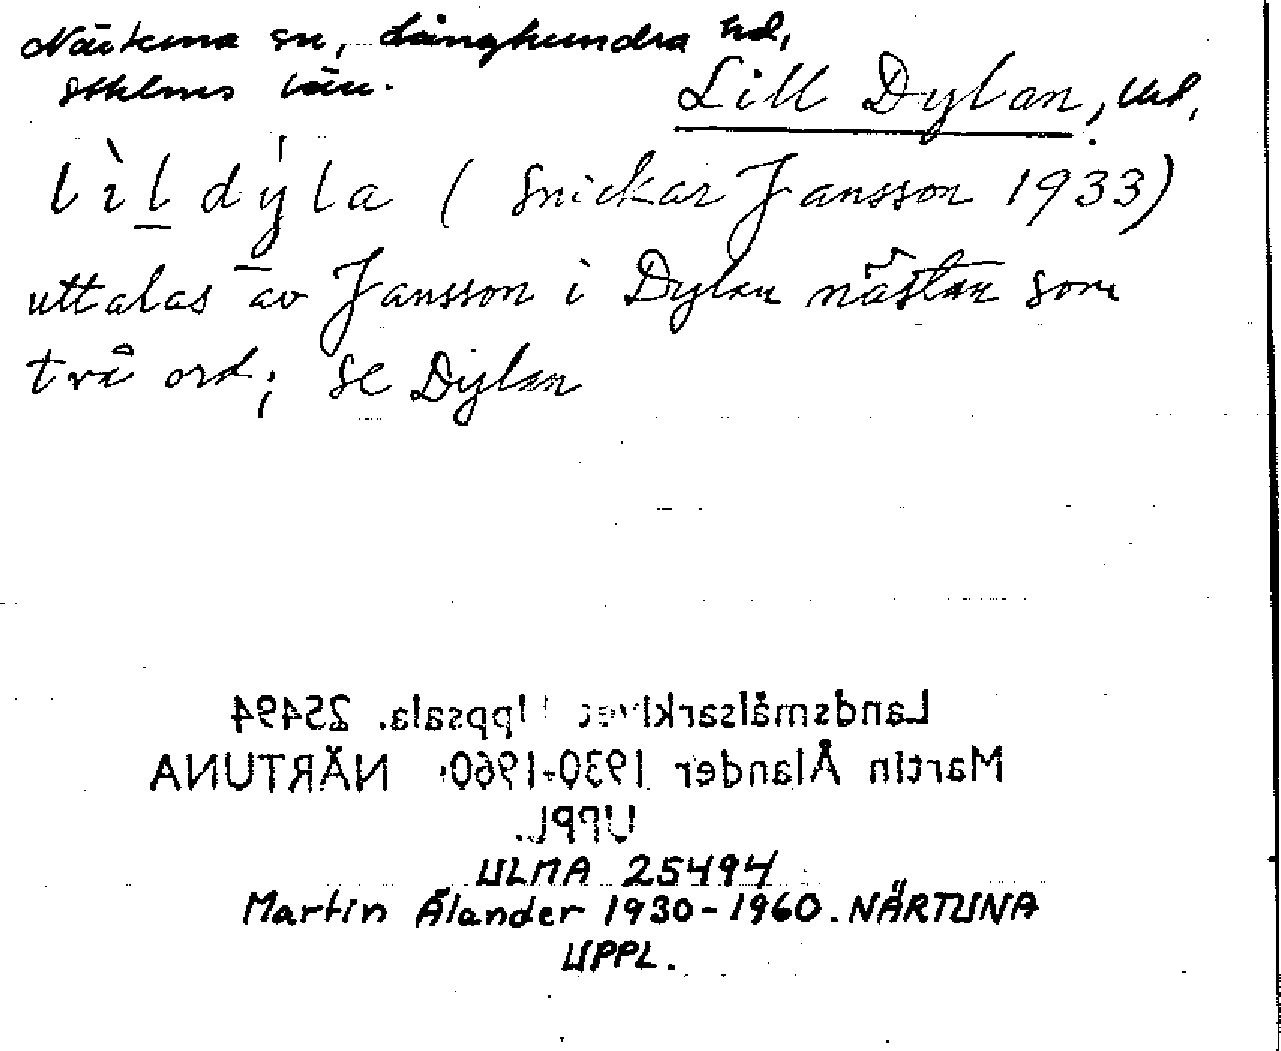 Närtuna sn, Långhundra hd,
Sthlms län.
Lill Dylan,
lìldýla (Snickar Jansson 1933)
uttalas av Jansson i Dylan nästan som
två ord; se Dylan
Landsmålsarkivet Uppsala. 25494
Martin Ålander 1930-1960. NÄRTUNA
UPPL.
ULMA 25494
Martin Ålander 1930-1960. NÄRTUNA
UPPL.